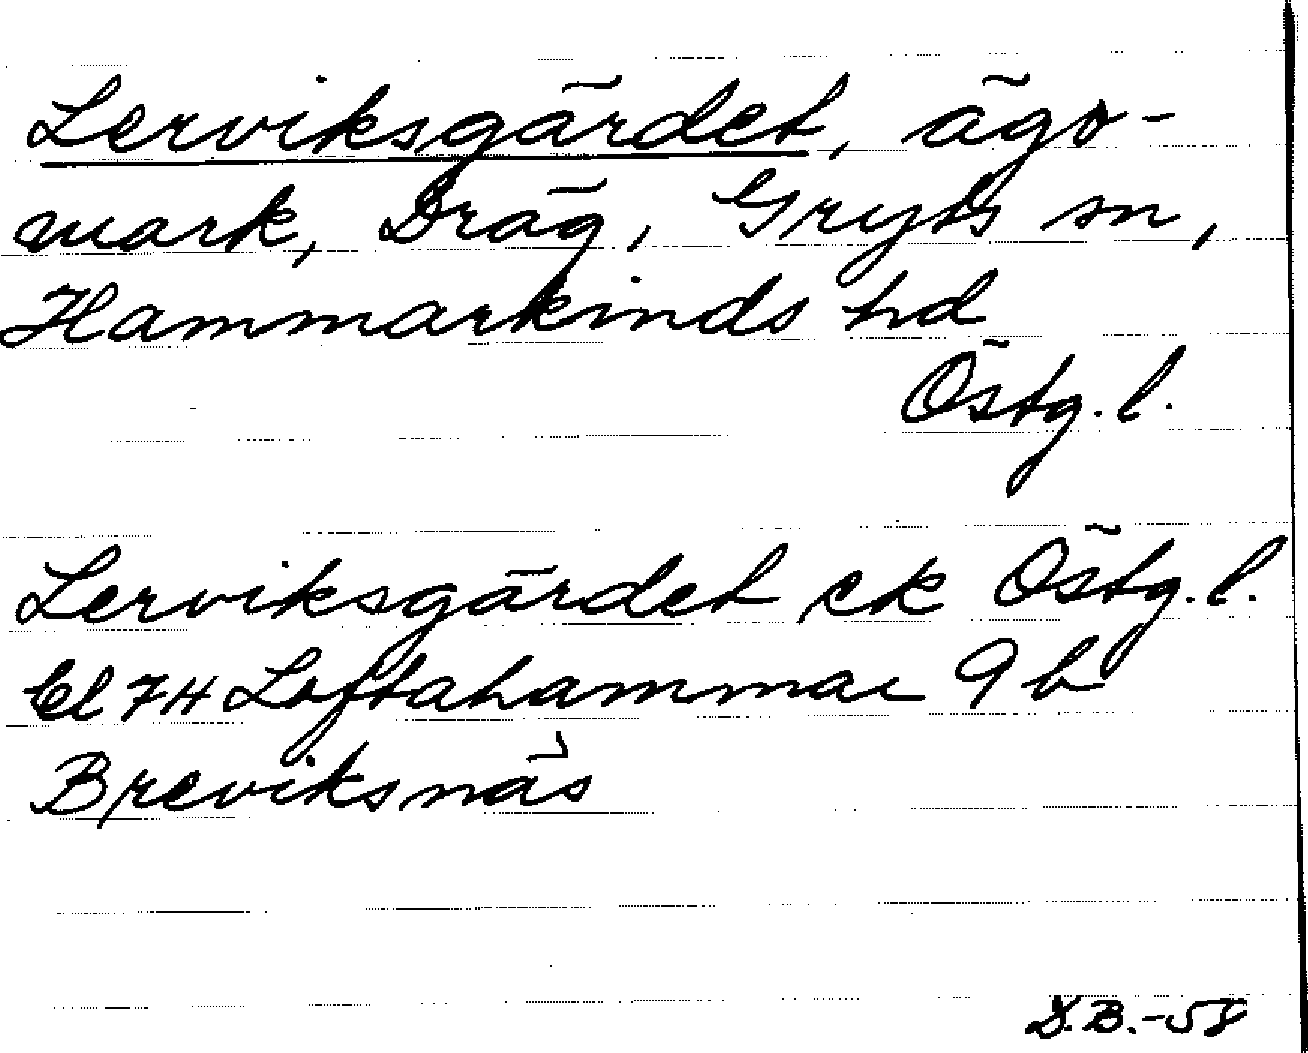 Lerviksgärdet, ägo-
mark, Dräg, Gryts sn,
Hammarkinds hd
Östg. l.
Lerviksgärdet ek Östg. l.
bl 7H Loftahammar 9 b
Breviksnäs
D.B.-58